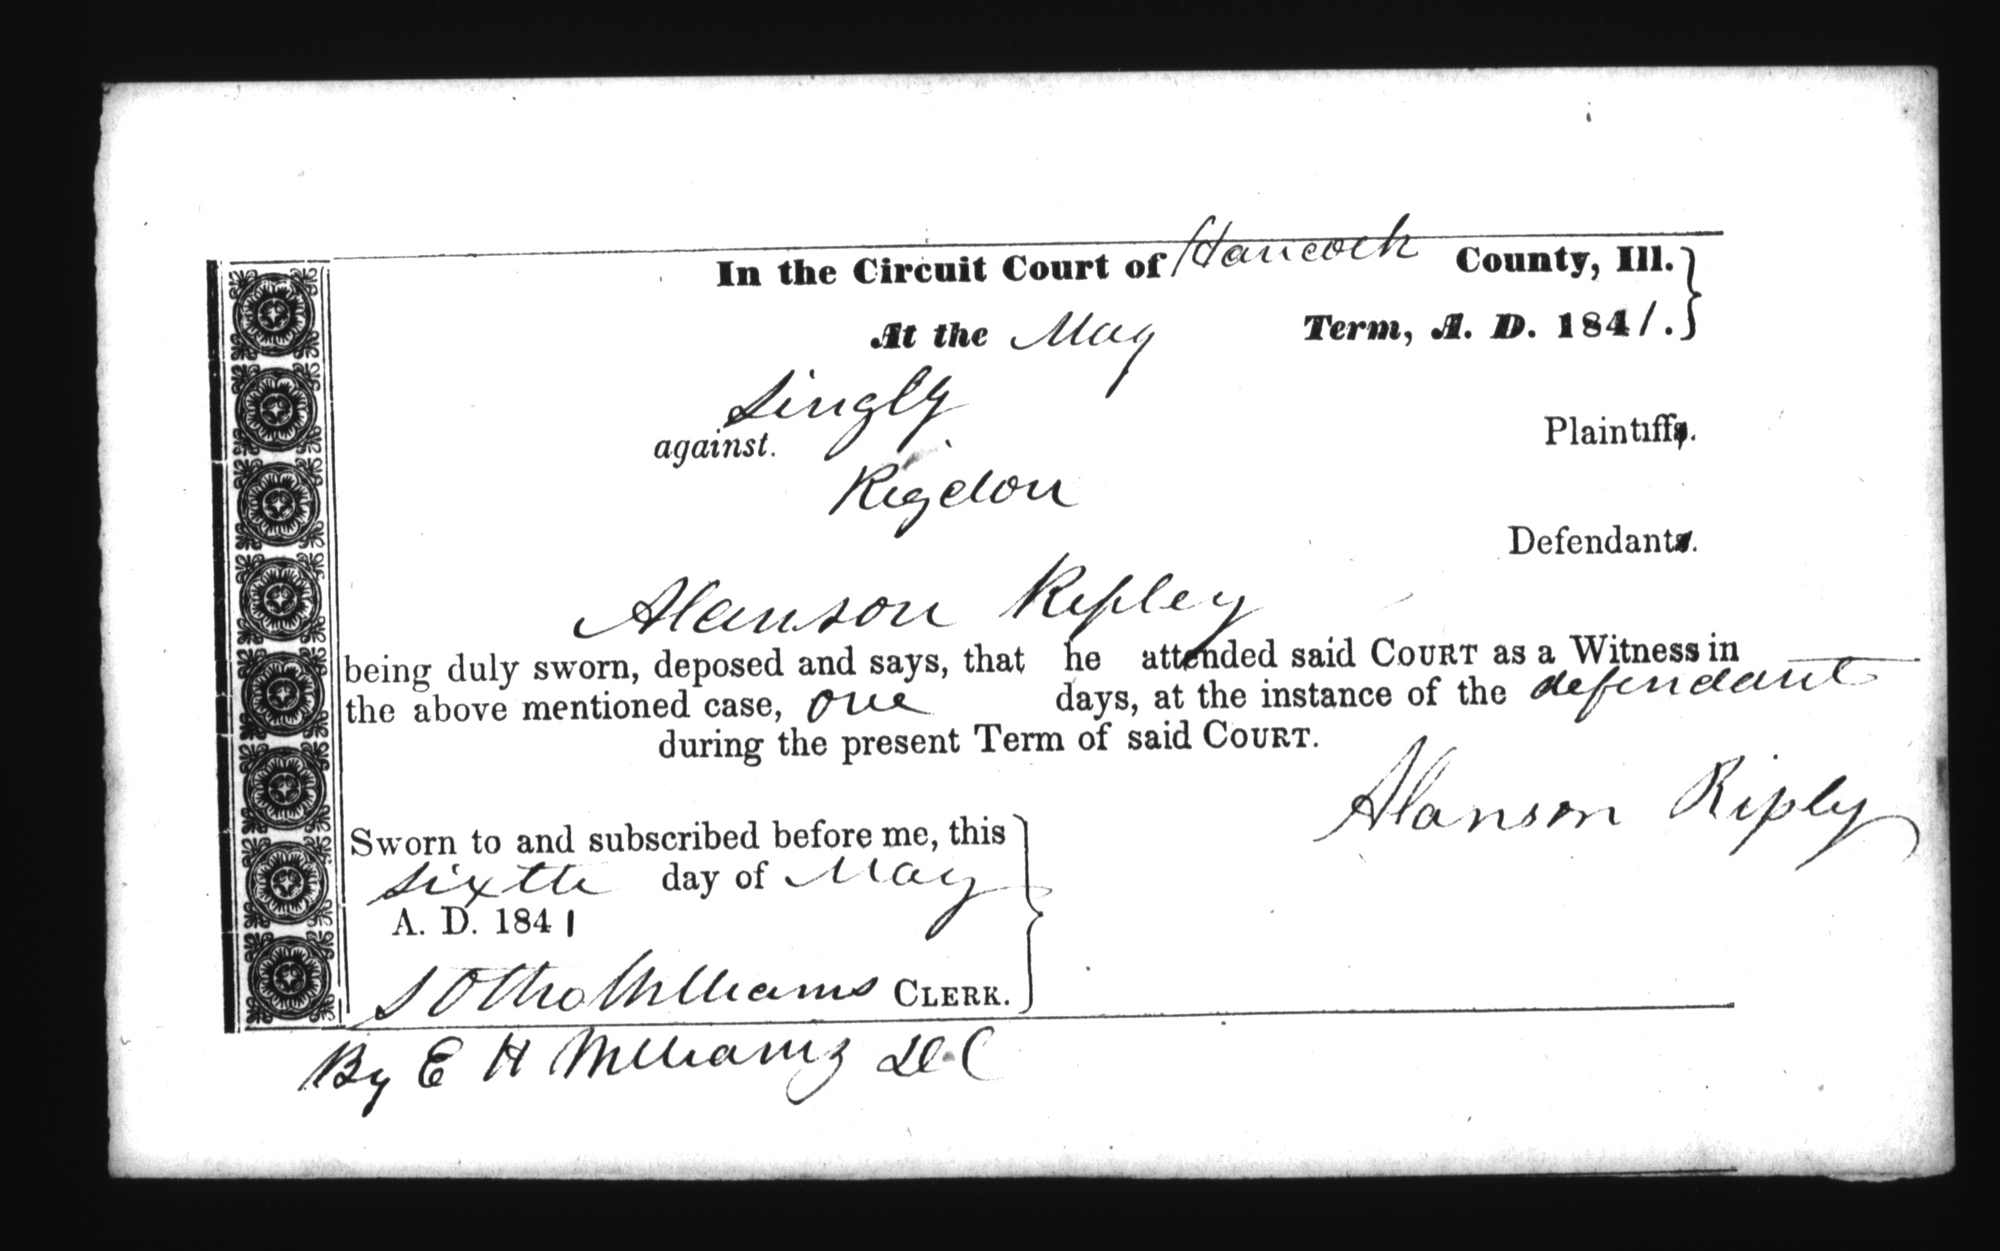 In the Circuit Court of Hancock County, Ill.
At the May Term, A. D. 1841.
Singly
against. Plaintiff.
Rigdon
Defendant.
Alanson Ripley
being duly sworn, deposed and says, that he attended said COURT as a Witness in
the above mentioned case, one days, at the instance of the defendant
during the present Term of said COURT.
Alanson Ripley
Sworn to and subscribed before me, this
sixth day of May
A. D. 1841
S Otho Williams CLERK.
By E H Williams D.C